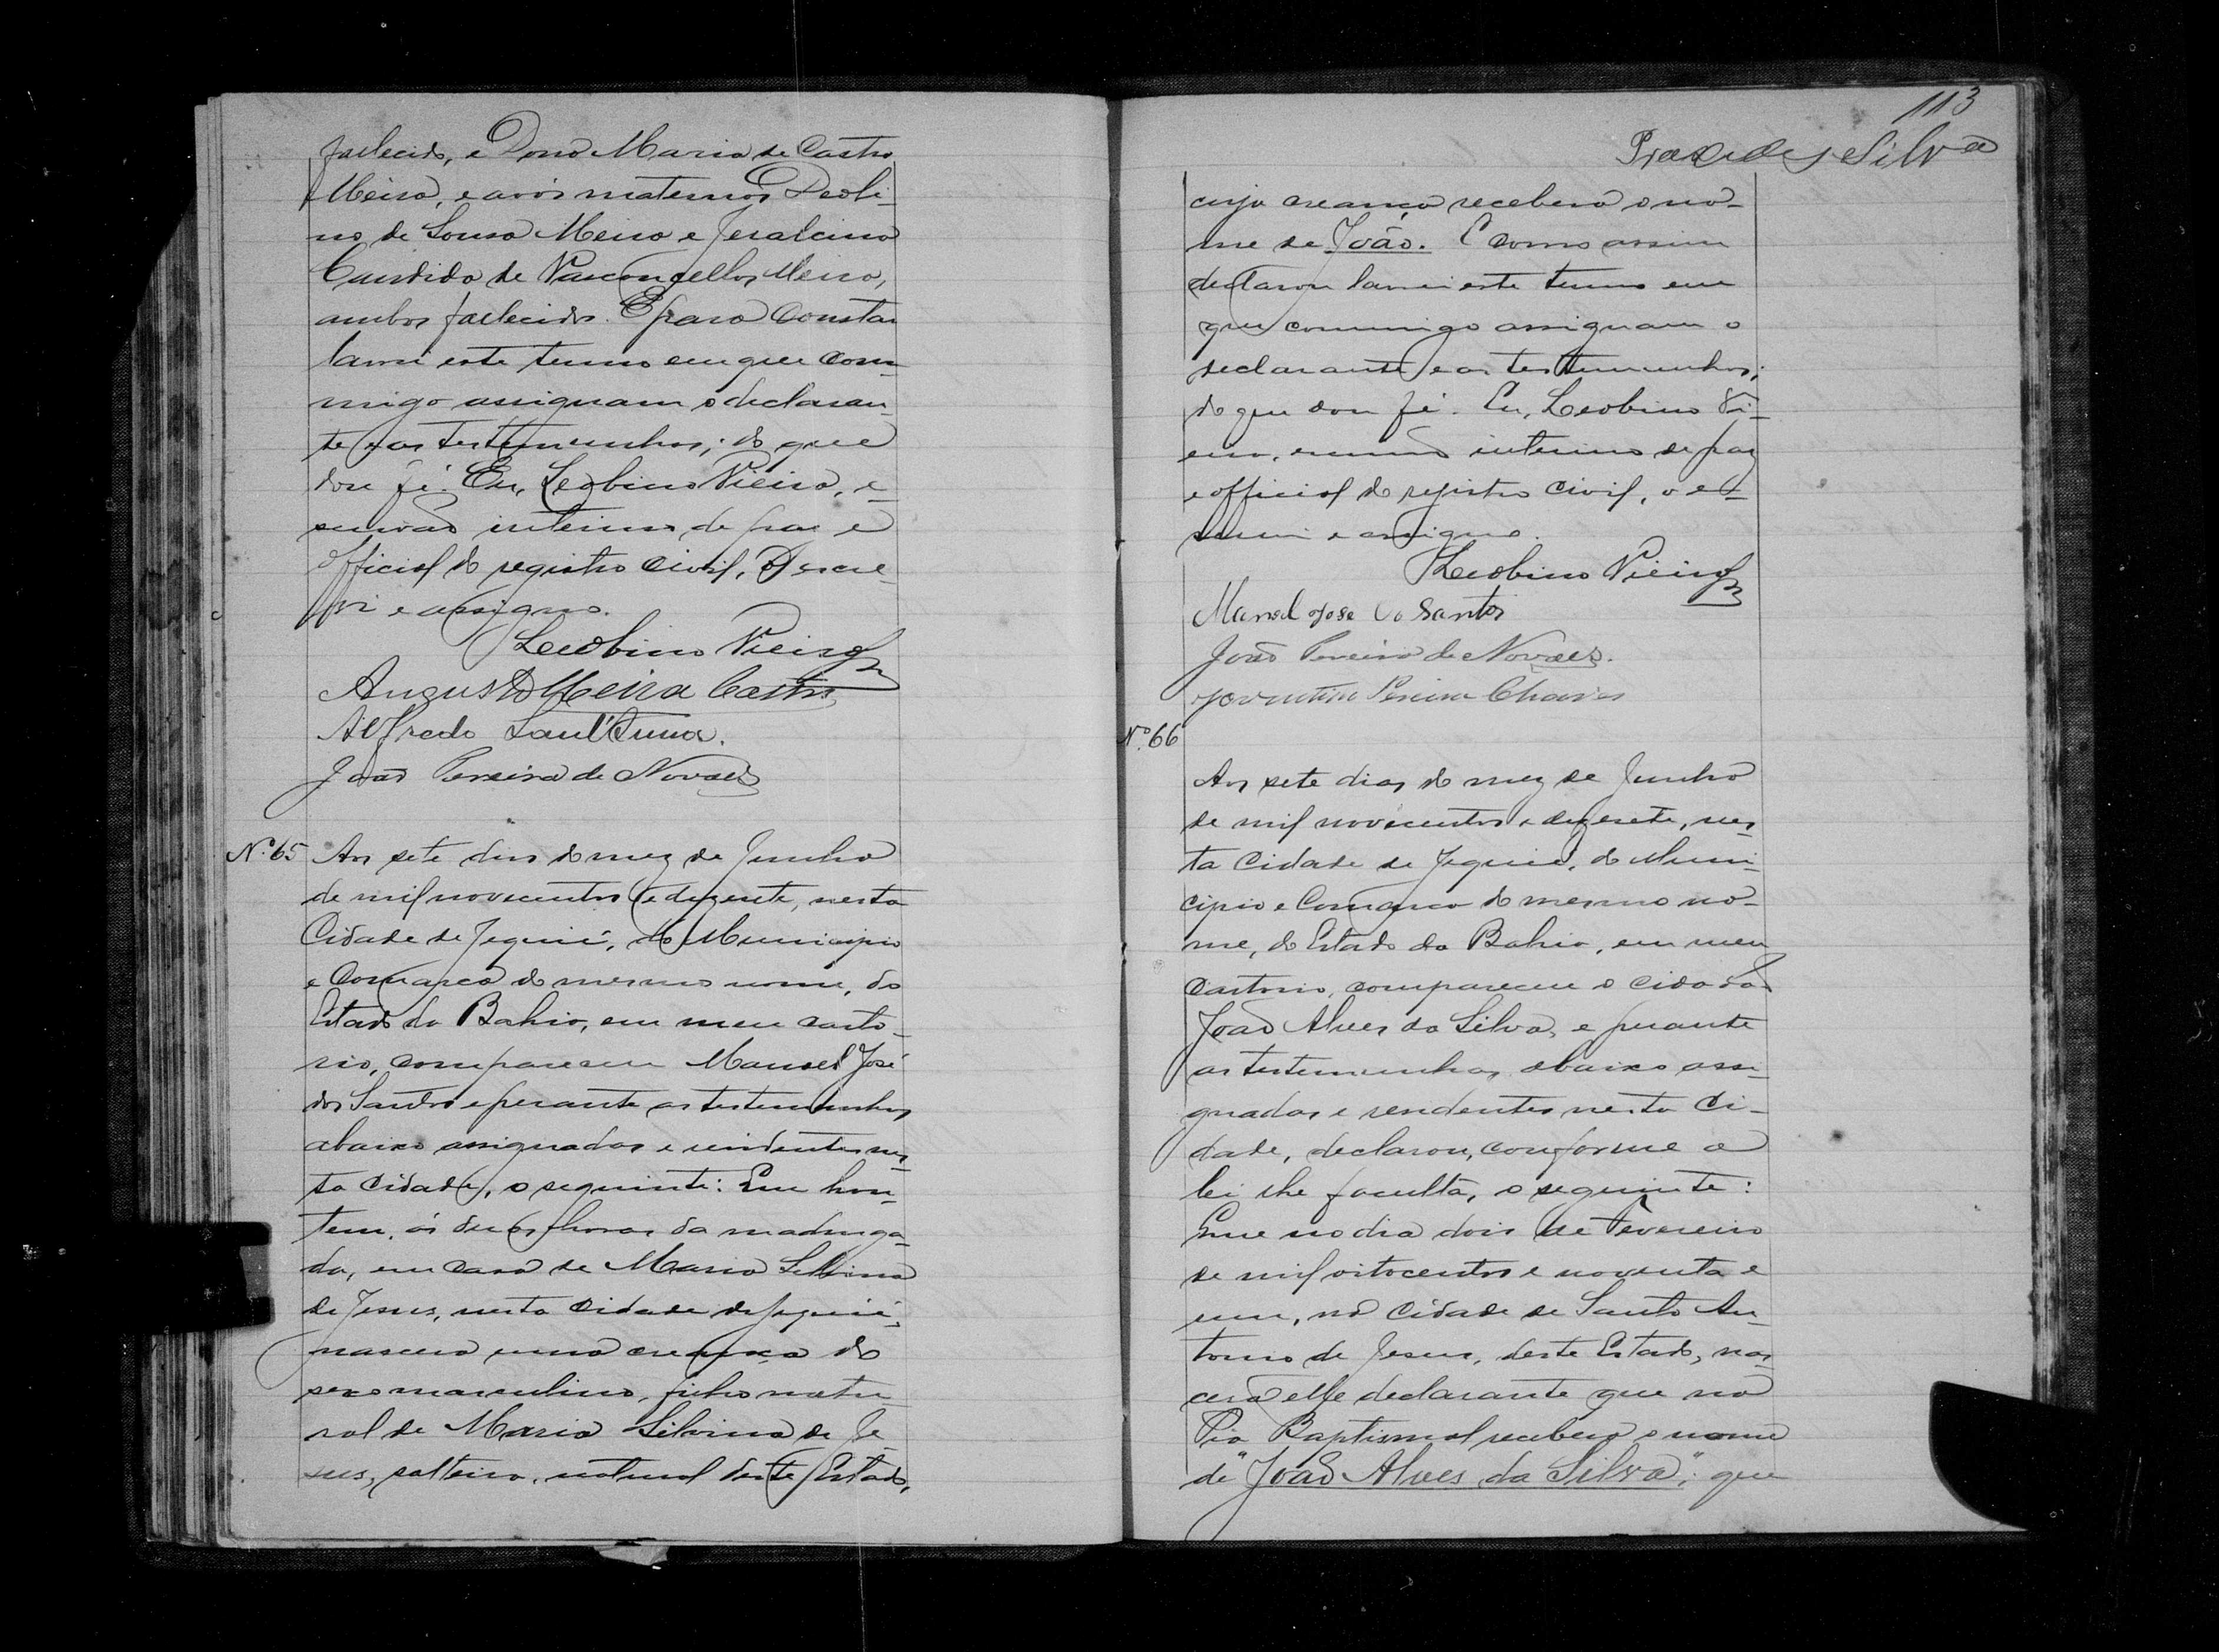 fallecido, e Dona Maria de Castro
Meira, e avós maternos Deoli-
no de Sousa Meira e Jeralcina
Candida de Vasconcellos Meira,
ambos fallecidos. E para constar
lavrei este termo em que com-
migo assignam o declaran-
te e as testemunhas; do que
dou fé. Eu, Leobino Vieira, e-
scrivão interino de paz e
official do registro civil, o escre-
vi e assigno.
Leobino Vieira
Augusto Meira Castro
Alfredo Sant'Anna.
João Pereira de Novaes
Nº 65 Aos sete dias do mez de Junho
de mil novecentos e dezesete, nesta
Cidade de Jequié, do Municipio
e Comarca do mesmo nome, do
Estado da Bahia, em meu carto-
rio, compareceu Manoel José
dos Santos e perante as testemunhas
abaixo assignadas e residentes nes-
ta cidade, o seguinte: Que hon-
tem, ás duas horas da madruga-
da, em casa de Maria Silvina
de Jesus, nesta cidade de Jequié,
nascera uma creança do
sexo masculino, filho natu-
ral de Maria Silvina de Je-
sus, solteira, natural deste Estado,
113
Praxedes Silva
cuja creança recebera o no-
me de João. E como assim
declarou lavrei este termo em
que commigo assignam o
declarante e as testemunhas;
do que dou fé. Eu, Leobino Vi-
eira, interino de paz
e official do registro civil, o es-
crevi e assigno.
Leobino Vieira
Manoel Jose do Santos
João Pereira de Novaes.
Pereira Chaves
Nº 66
Aos sete dias do mez de Junho
de mil novecentos e dezesete, nes-
ta Cidade de Jequié, do Muni-
cipio e Comarca do mesmo no-
me, do Estado da Bahia, em meu
Cartorio, compareceu o cidadão
João Alves da Silva, e perante
as testemunhas abaixo assi-
gnadas e residentes nesta Ci-
dade, declarou, conforme a
lei lhe faculta, o seguinte:
Que no dia dois de Fevereiro
de mil oitocentos e noventa e
um, na Cidade de Santo An-
tonio de Jesus, deste Estado, nas-
cera elle declarante que na
Pia Baptismal recebera o nome
de "João Alves da Silva"; que